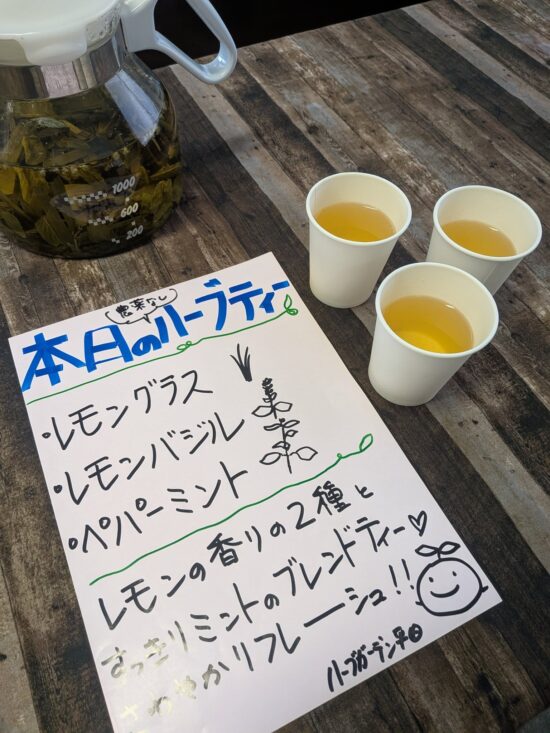 1000
600
200
農薬なし
本月のハーブティー
・レモングラス
・レモンバジル
・ペパーミント
レモンの香りの2種と
すっきりミントのブレンドティー♡
さわやかリフレーシュ!!
ハーブガーデン早田